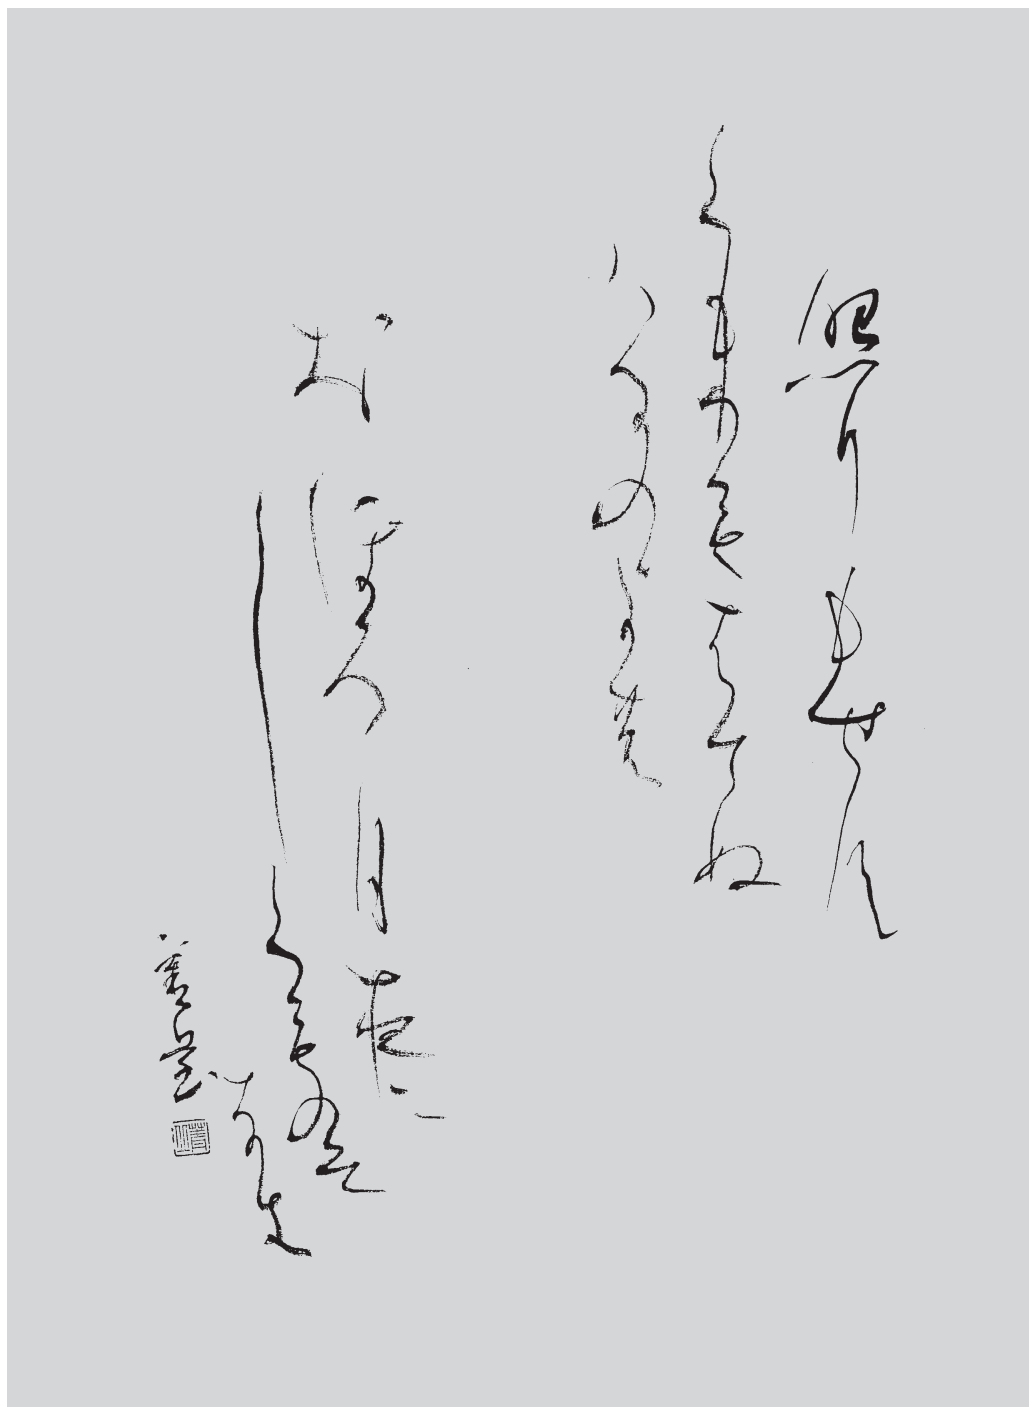 照りもせす
くもりもはてぬ
はるのよの
おほろ月夜に
しくものそ
なき